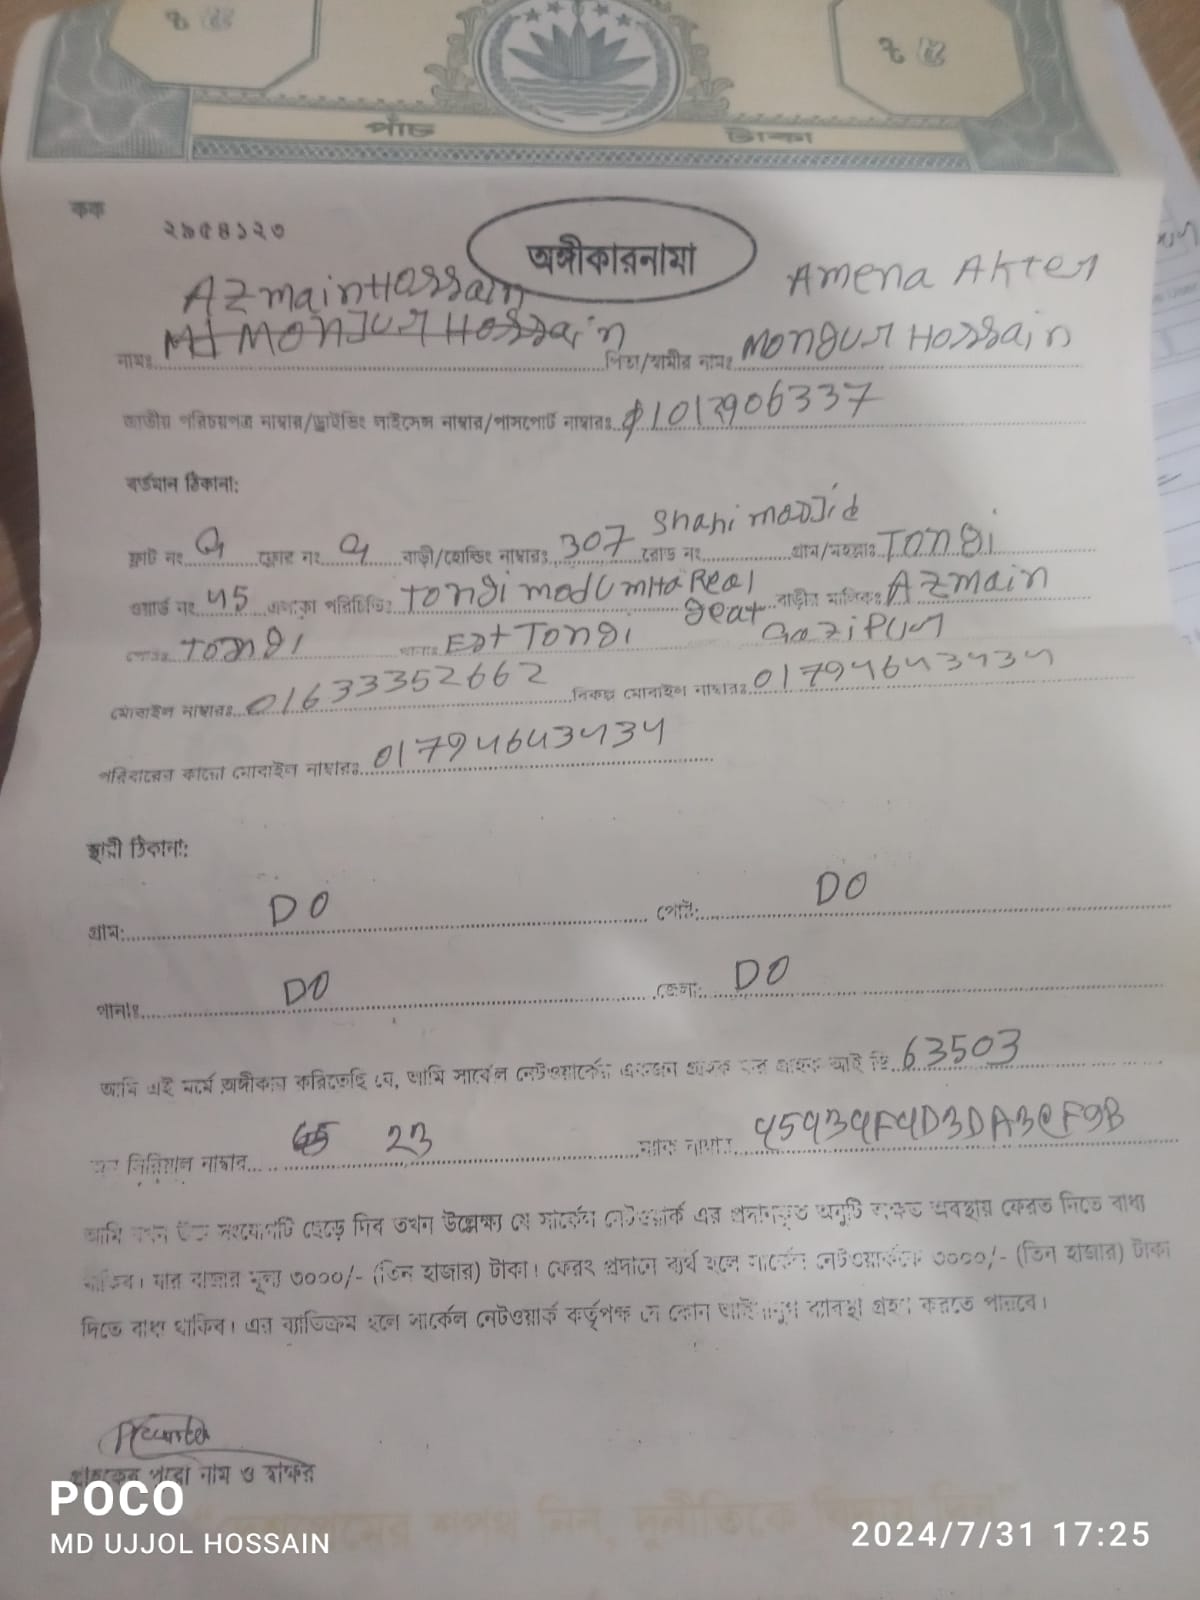 ৳ ৫ ৳ ৫
পাঁচ টাকা
কক ২৯৫৪১২৩
অঙ্গীকারনামা
Azmain Hossain Amena Akter
নামঃ Md Monjur Hossain পিতা/স্বামীর নামঃ Mongur Hossain
জাতীয় পরিচয়পত্র নাম্বার/ড্রাইভিং লাইসেন্স নাম্বার/পাসপোর্ট নাম্বারঃ
বর্তমান ঠিকানা:
ফ্লাট নং ফ্লোর নং বাড়ী/হোল্ডিং নাম্বারঃ 307 Shahi masjid রোড নং গ্রাম/মহল্লাঃ Tongi
ওয়ার্ড নং 45 এলাকা পরিচিতিঃ Tongi Real geat বাড়ীর মালিকঃ Azmain
Tongi Est Tongi Gazipur
মোবাইল নাম্বারঃ 01633352662 বিকল্প মোবাইল নাম্বারঃ 01794643434
পরিবারের কারো মোবাইল নাম্বারঃ 01794643434
স্থায়ী ঠিকানা:
গ্রাম: DO পোষ্ট: DO
থানাঃ DO জেলা: DO
আমি এই মর্মে অঙ্গীকার করিতেছি যে, আমি সার্কেল নেটওয়ার্কের একজন গ্রাহক যার গ্রাহক আই ডি 63503
সিরিয়াল নাম্বার 23 ম্যাক নাম্বার
আমি যখন উক্ত সংযোগটি ছেড়ে দিব তখন উল্লেক্ষ্য যে সার্কেল নেটওয়ার্ক এর প্রদানকৃত অনুটি অক্ষত অবস্থায় ফেরত দিতে বাধ্য
থাকিব। যার বাজার মূল্য ৩০০০/- (তিন হাজার) টাকা। ফেরৎ প্রদানে ব্যর্থ হলে সার্কেল নেটওয়ার্ককে ৩০০০/- (তিন হাজার) টাকা
দিতে বাধ্য থাকিব। এর ব্যাতিক্রম হলে সার্কেল নেটওয়ার্ক কর্তৃপক্ষ যে কোন আইনানুগ ব্যাবস্থা গ্রহণ করতে পারবে।
গ্রাহকের পুরো নাম ও স্বাক্ষর
POCO
MD UJJOL HOSSAIN
2024/7/31 17:25